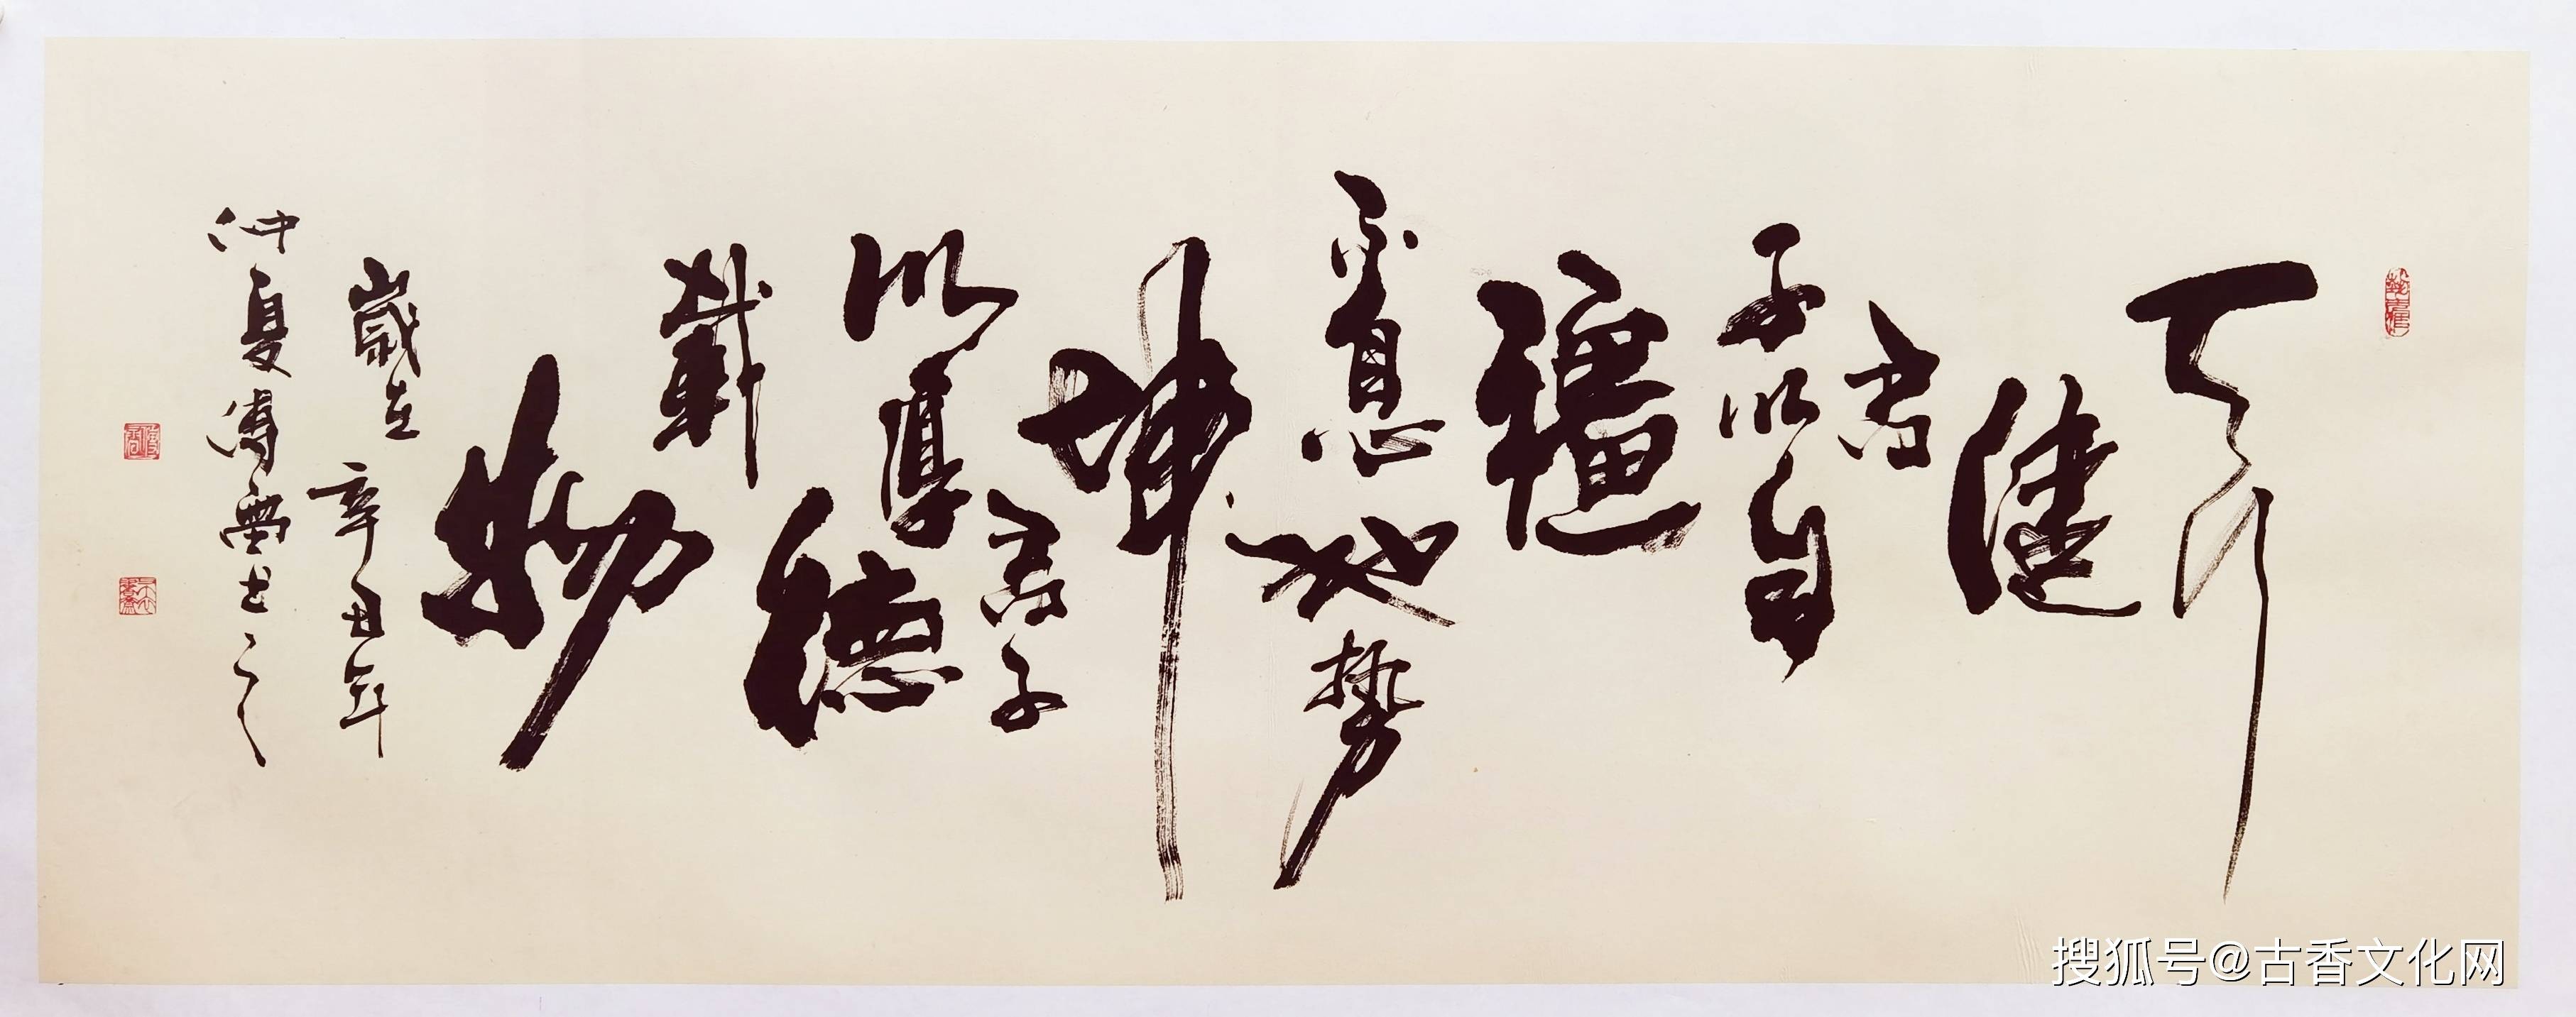 天行
健
君
子以自
彊
不息地勢
坤
君子
以厚
德
載
物
歲在辛丑年
仲夏傅書之
搜狐号@古香文化网